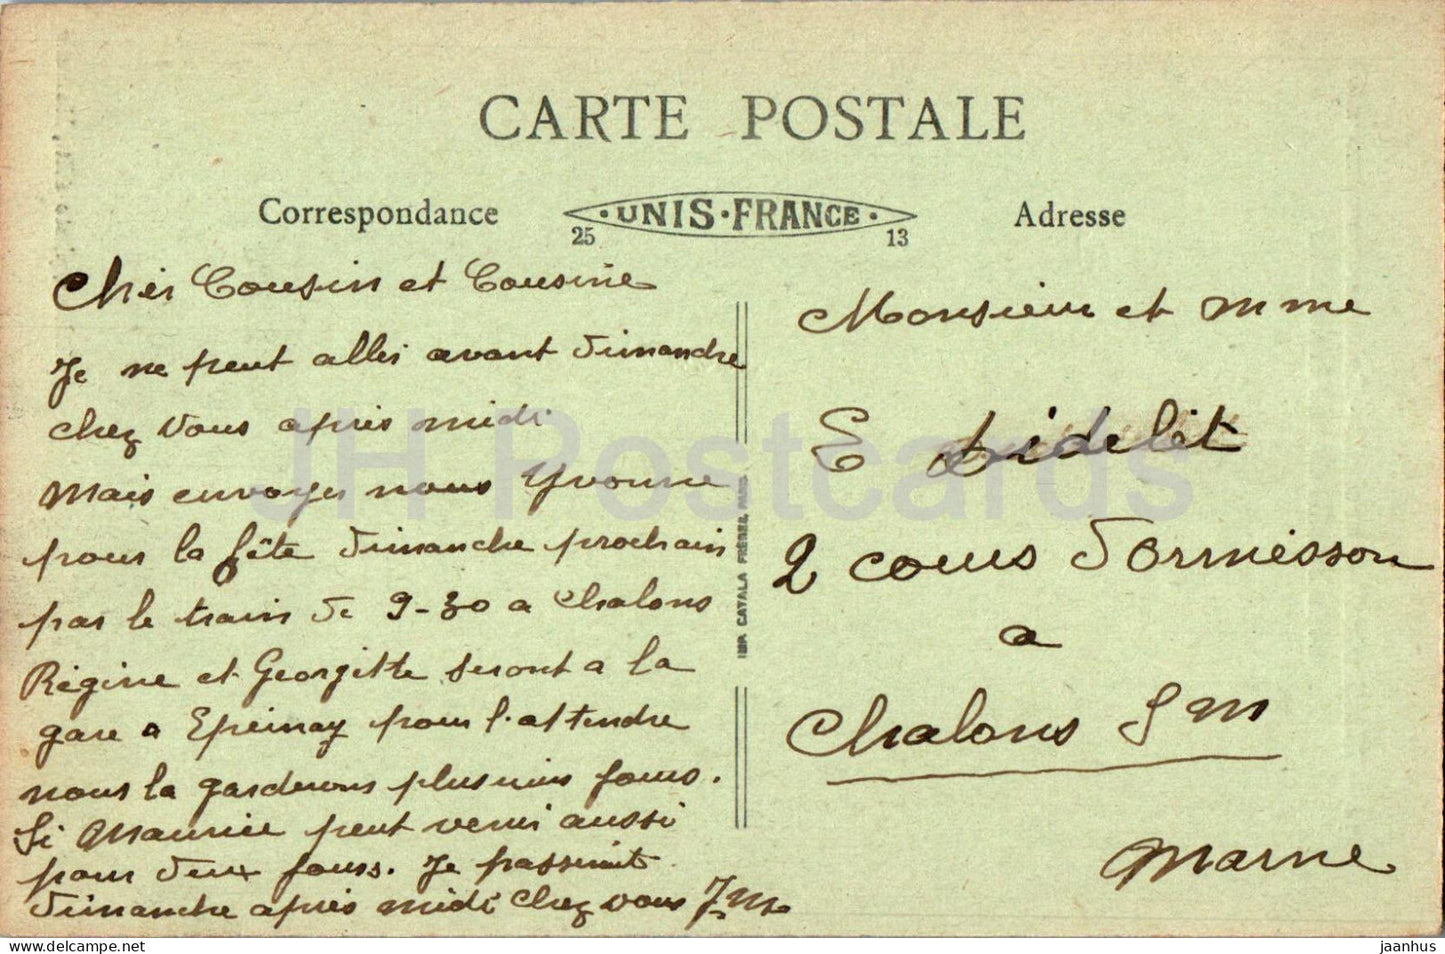 CARTE POSTALE
Correspondance
UNIS-FRANCE
25 13
Adresse
Cher Cousin et Cousine
Je ne peut aller avant dimanche
chez vous après midi
Mais envoyer nous Yvonne
pour la fête dimanche prochain
par le train de 9-30 a Chalons
Régine et Georgette seront a la
gare a Epernay pour l'attendre
nous la garderons plusieurs jours.
Si Maurice peut venir aussi
pour deux jours. Je
dimanche après midi chez vous
Monsieur et Mme
E Didelet
2 cours Dormesson
a
Chalons S M
Marne
IMP. CATALA FRÈRES, PARIS
JH Postcards
www.delcampe.net
jaanhus